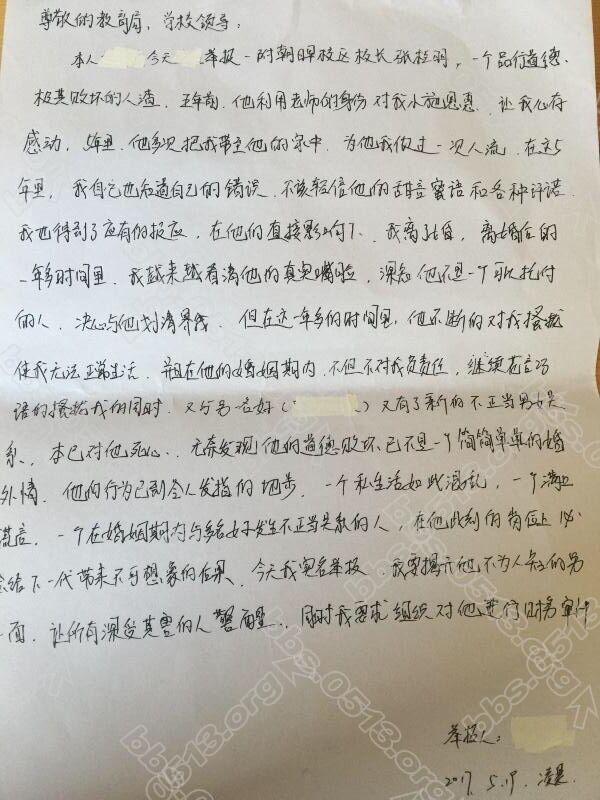 尊敬的教育局、学校领导:
本人 今天 举报一附朝晖校区校长张松羽,一个品行道德
极其败坏的人渣,五年前,他利用老师的身份对我小施恩惠,让我心存
感动,5年里,他多次把我带至他的家中,为他我做过一次人流,在这5
年里,我自己也知道自己的错误,不该轻信他的甜言蜜语和各种许诺
我也得到了应有的报应,在他的直接影响下,我离了婚,离婚后的
一年多时间里,我越来越看清他的真实嘴脸,深知他不是一个可以托付
的人,决心与他划清界线,但在这一年多的时间里,他不断的对我搔扰
使我无法正常生活,并且在他的婚姻期内,不但不对我负责任,继续花言巧
语的搔扰我的同时,又与另一女好( )又有了新的不正当男女关
系,本已对他死心,无奈发现他的道德败坏已不是一个简简单单的婚
外情,他的行为已到令人发指的地步,一个私生活如此混乱,一个满口
谎言,一个在婚姻期内与多名女子发生不正当关系的人,在他此刻的岗位上必
会给下一代带来不可想象的后果,今天我实名举报,我要揭开他不为人知的另
一面,让所有深受其害的人警醒,同时我要求组织对他进行财务审计
举报人:
2017.5.19.凌晨
bbs.0513.org